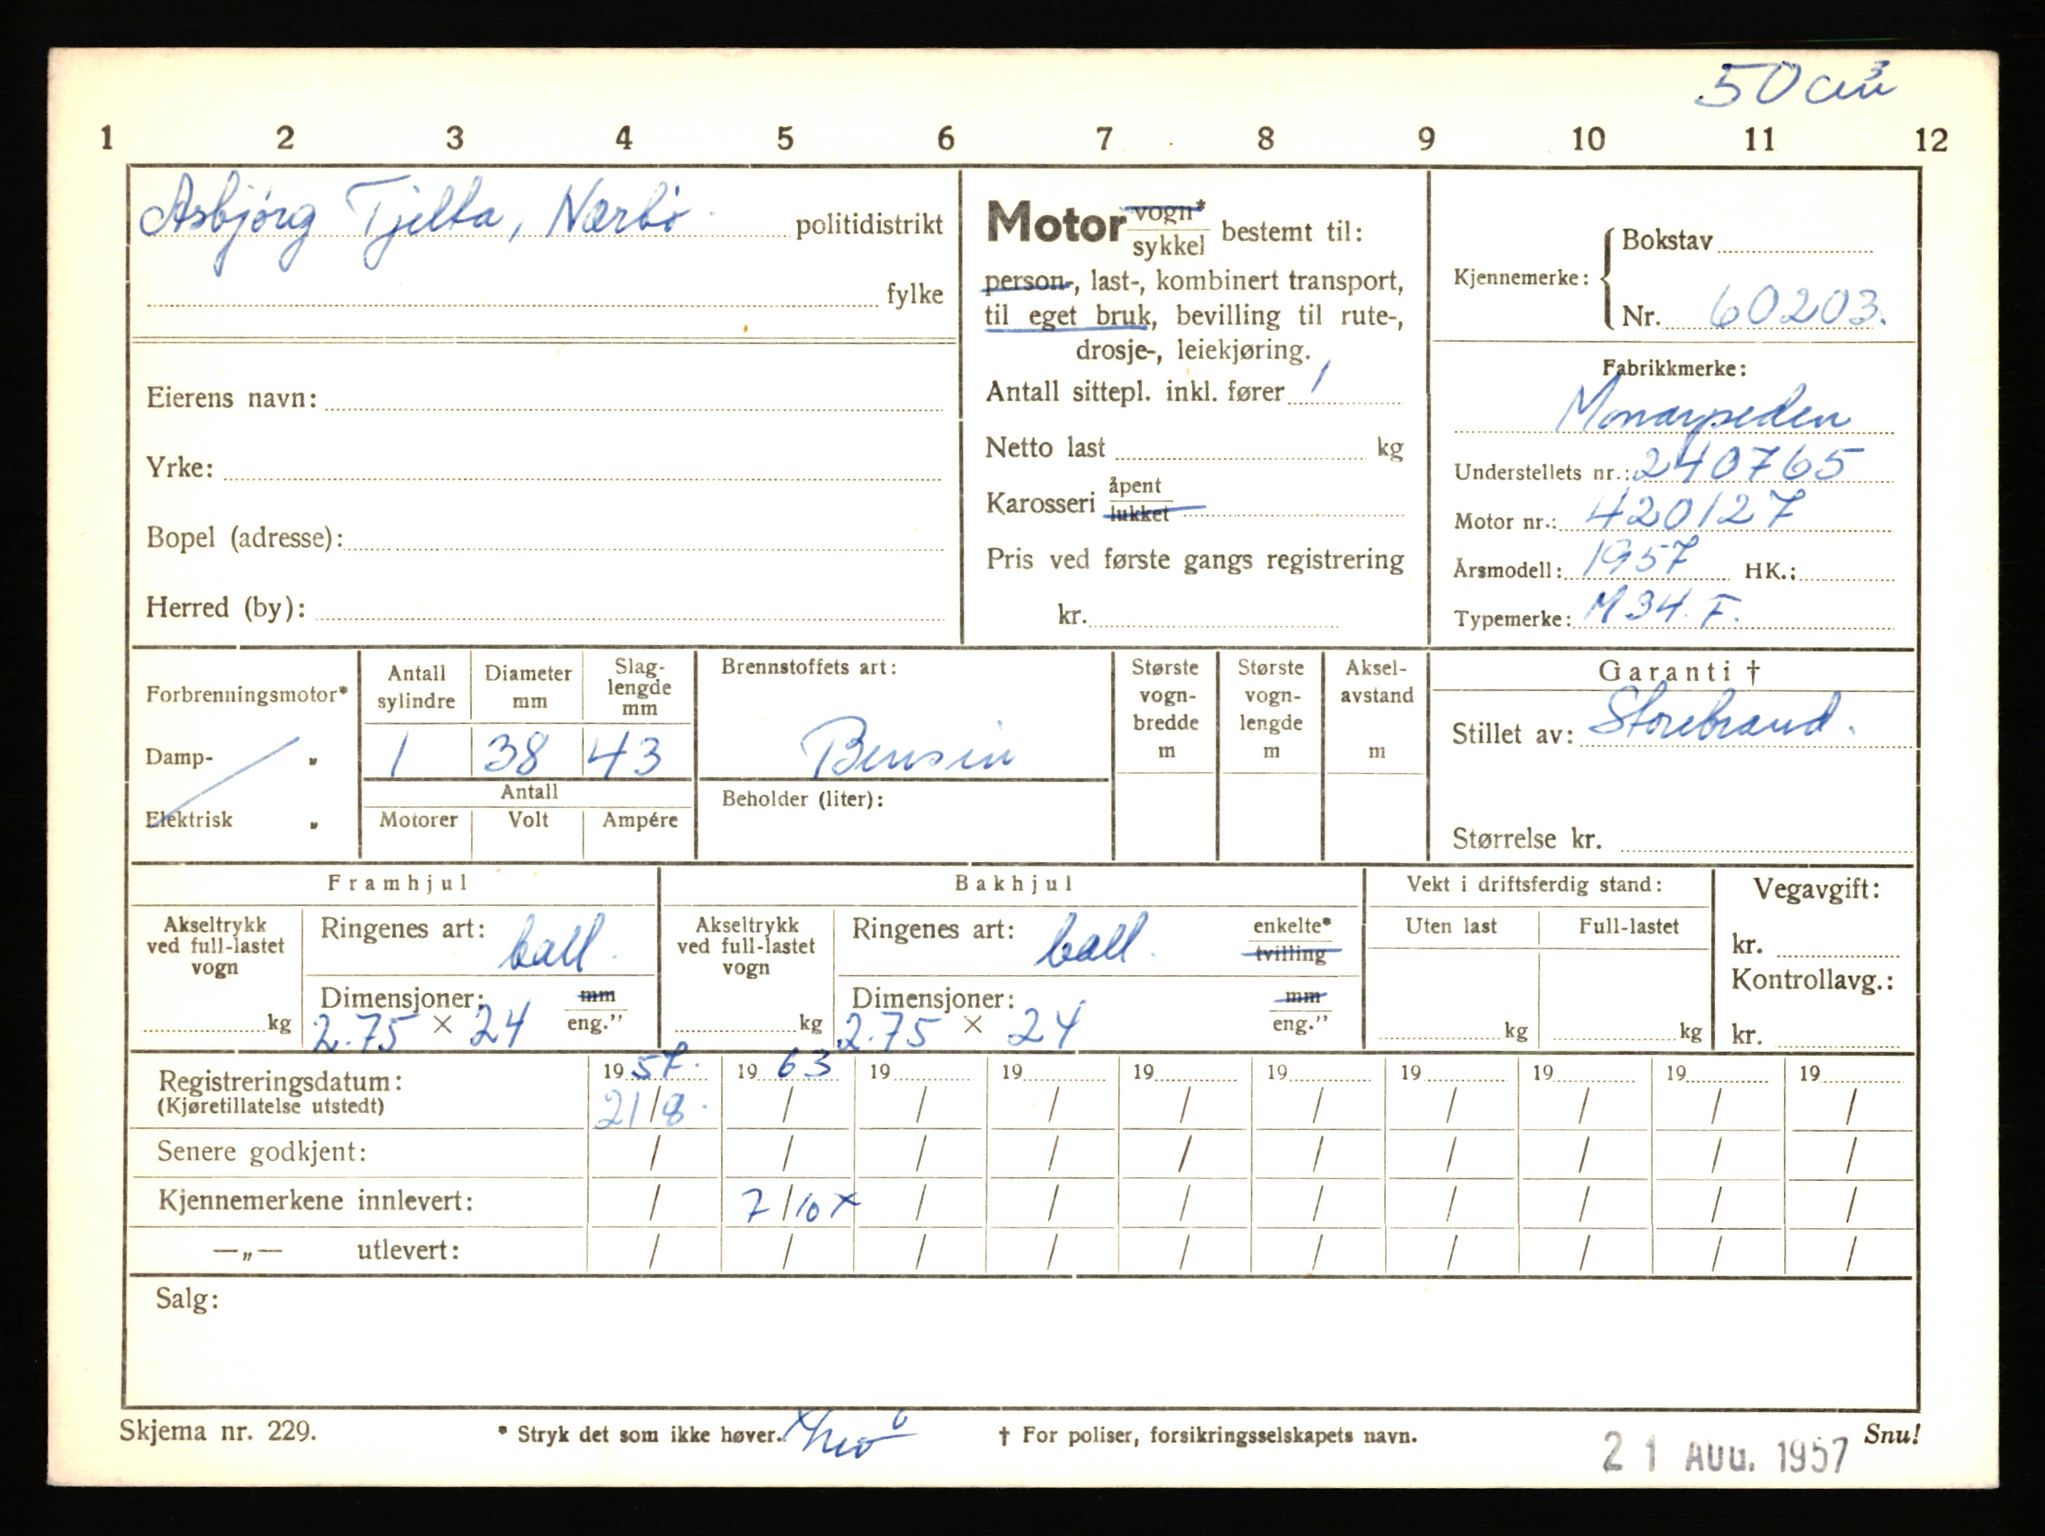 50 cm³
1 2 3 4 5 6 7 8 9 10 11 12
Asbjörg Tjelta, Nærbö. politidistrikt
fylke
Eierens navn:
Yrke:
Bopel (adresse):
Herred (by):
Motor vogn* sykkel bestemt til:
person-, last-, kombinert transport,
til eget bruk, bevilling til rute-,
drosje-, leiekjøring.
Antall sittepl. inkl. fører 1
Netto last kg
Karosseri åpent lukket
Pris ved første gangs registrering
kr.
Kjennemerke: Bokstav
Nr. 60203.
Fabrikkmerke:
Monarpeden
Understellets nr.: 240765
Motor nr.: 420127
Årsmodell: 1957 HK.:
Typemerke: M 34. F.
Forbrenningsmotor*
Damp- „
Elektrisk „
Antall sylindre
Diameter mm
Slag-
lengde
mm
1 38 43
Antall
Motorer Volt Ampére
Brennstoffets art:
Bensin
Beholder (liter):
Største
vogn-
bredde
m
Største
vogn-
lengde
m
Aksel-
avstand
m
Garanti †
Stillet av: Storebrand.
Størrelse kr.
Framhjul
Akseltrykk
ved full-lastet
vogn
kg
Ringenes art: ball.
Dimensjoner: mm
2.75 × 24 eng.”
Bakhjul
Akseltrykk
ved full-lastet
vogn
kg
Ringenes art: ball. enkelte* tvilling
Dimensjoner: mm
2.75 × 24 eng.”
Vekt i driftsferdig stand:
Uten last Full-lastet
kg kg
Vegavgift:
kr.
Kontrollavg.:
kr.
Registreringsdatum: 19 57. 19 63 19 19 19 19 19 19 19 19
(Kjøretillatelse utstedt) 21/8. / / / / / / / / /
Senere godkjent: / / / / / / / / / /
Kjennemerkene innlevert: / 7/10 x / / / / / / / /
—„— utlevert: / / / / / / / / / /
Salg:
Skjema nr. 229. * Stryk det som ikke høver. † For poliser, forsikringsselskapets navn. Snu!
21 AUG. 1957